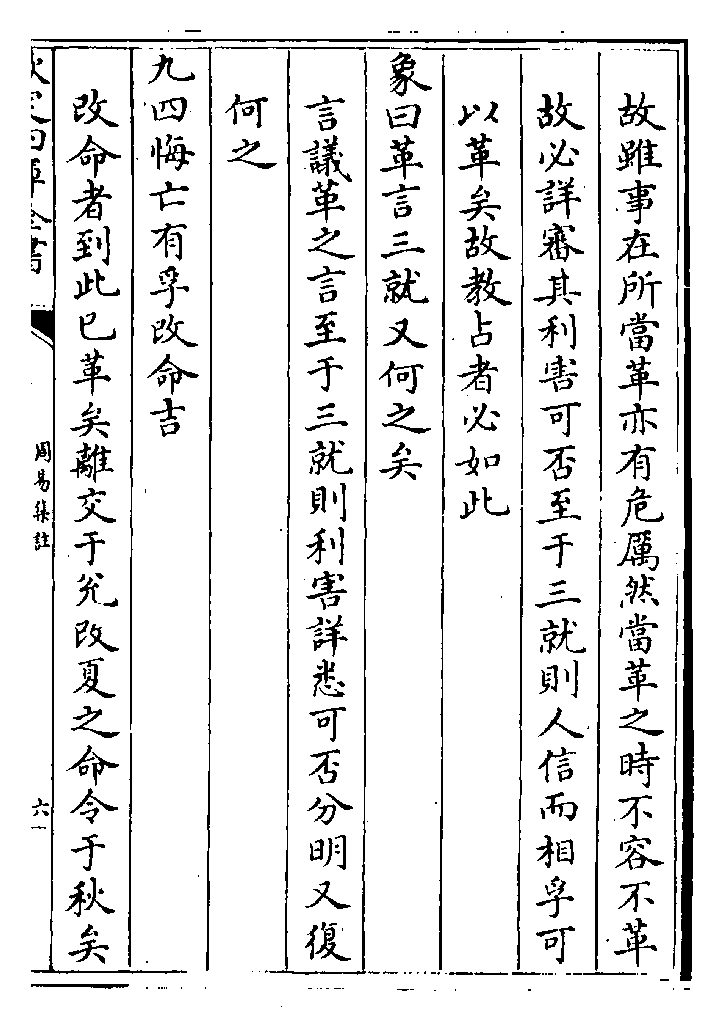 故雖事在所當革亦有危厲然當革之時不容不革
故必詳審其利害可否至于三就則人信而相孚可
以革矣故教占者必如此
象曰革言三就又何之矣
言議革之言至于三就則利害詳悉可否分明又復
何之
九四悔亡有孚改命吉
改命者到此已革矣離交于兊改夏之命令于秋矣
欽定四庫全書
周易集註
六